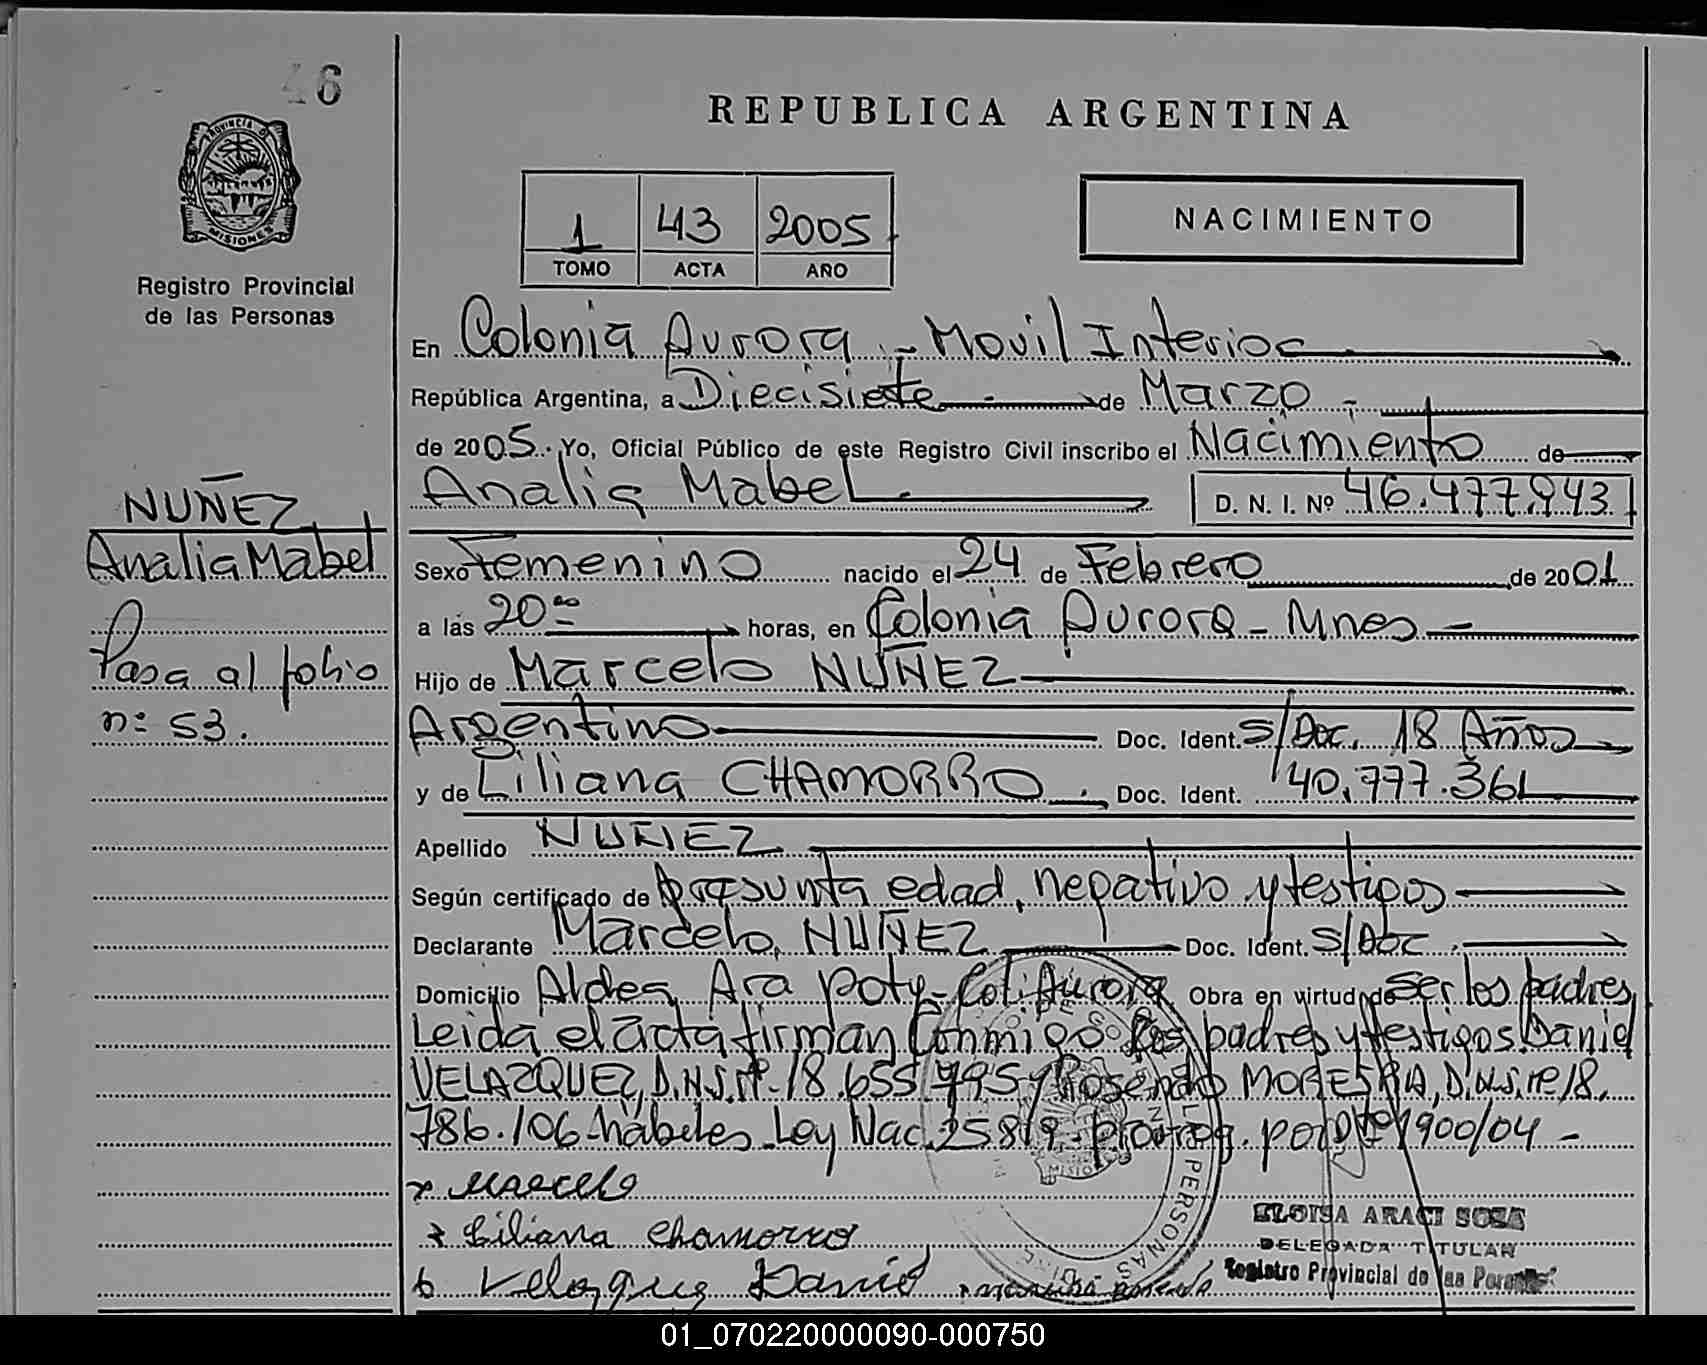 46
PROVINCIA DE
MISIONES
Registro Provincial
de las Personas
REPUBLICA ARGENTINA
1 43 2005
TOMO ACTA AÑO
NACIMIENTO
En Colonia Aurora - Movil Interior
República Argentina, a Diecisiete de Marzo -
de 2005. Yo, Oficial Público de este Registro Civil inscribo el Nacimiento de
Analia Mabel D. N. I. Nº 46.477.943
NUÑEZ
Analia Mabel
Pasa al folio
nº 53.
Sexo Femenino nacido el 24 de Febrero de 2001
a las 20 00 horas, en Colonia Aurora - Mnes -
Hijo de Marcelo NUÑEZ
Argentino Doc. Ident. S/Doc. 18 Años
y de Liliana CHAMORRO . Doc. Ident. 40.777.361
Apellido NUÑEZ
Según certificado de presunta edad, negativo y testigos
Declarante Marcelo NUÑEZ Doc. Ident. S/Doc.
Domicilio Aldea Ara Poty - Col. Aurora Obra en virtud de ser los padres,
Leida el acta firman conmigo los padres y testigos Daniel
VELAZQUEZ, D.N.I. Nº 18.655.795 y Rosendo MOREIRA, D.N.I. Nº 18.
786.106 - hábeles - Ley Nac. 25.819 - prorrog. por 1900/04 -
x Marcelo
x Liliana Chamorro
Velazquez Daniel
ELOISA ARACI SOSA
DELEGADA TITULAR
Registro Provincial de las Personas
01_070220000090-000750